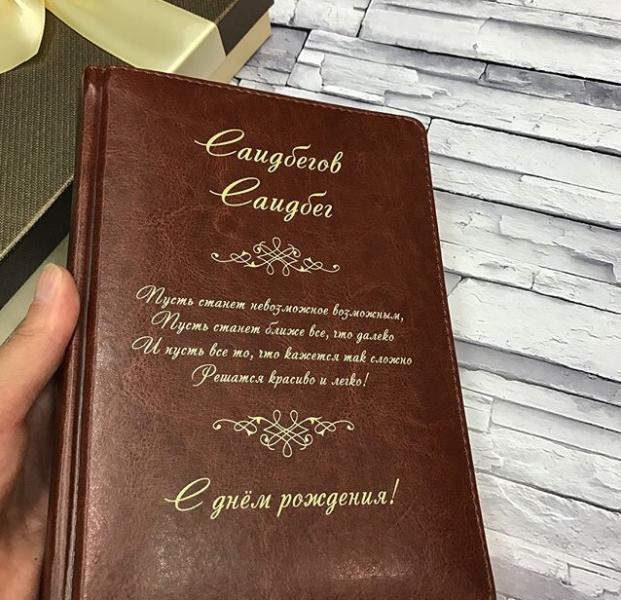 Саидбегов
Саидбег
Пусть станет невозможное возможным,
Пусть станет ближе все, что далеко
И пусть все то, что кажется так сложно
Решатся красиво и легко!
С днём рождения!